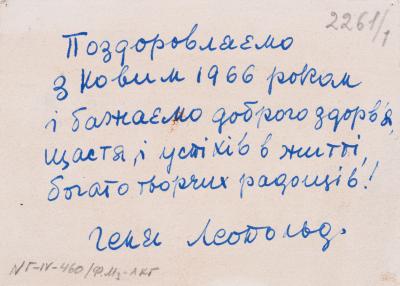 2261/1
Поздоровляємо
з Новим 1966 роком
і бажаємо доброго здоров'я,
щастя, і успіхів в житті,
богато творчих радощів!
Геня Леопольд.
NГ-IV-460/Ф.М3-ЛКГ